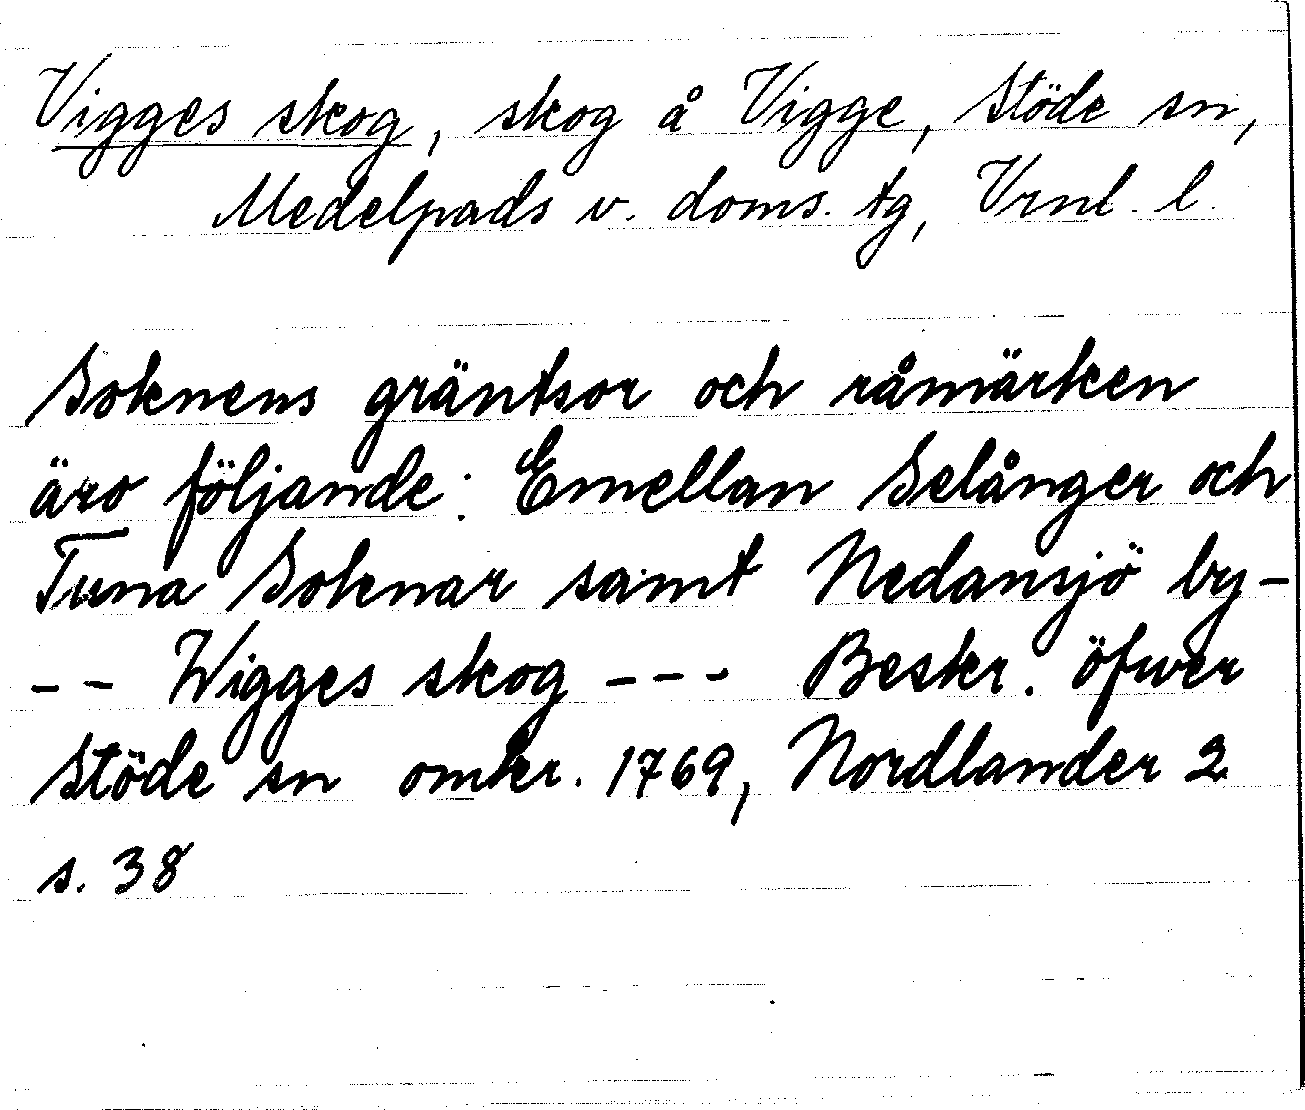 Vigges skog, skog å Vigge, Stöde sn,
Medelpads v. doms. tg, Vrnl. l.
Soknens gräntsor och råmärken
äro följande: Emellan Selånger och
Tuna Soknar samt Nedansjö by-
-- Wigges skog --- Beskr. öfwer
Stöde sn omkr. 1769, Nordlander 2
s. 38